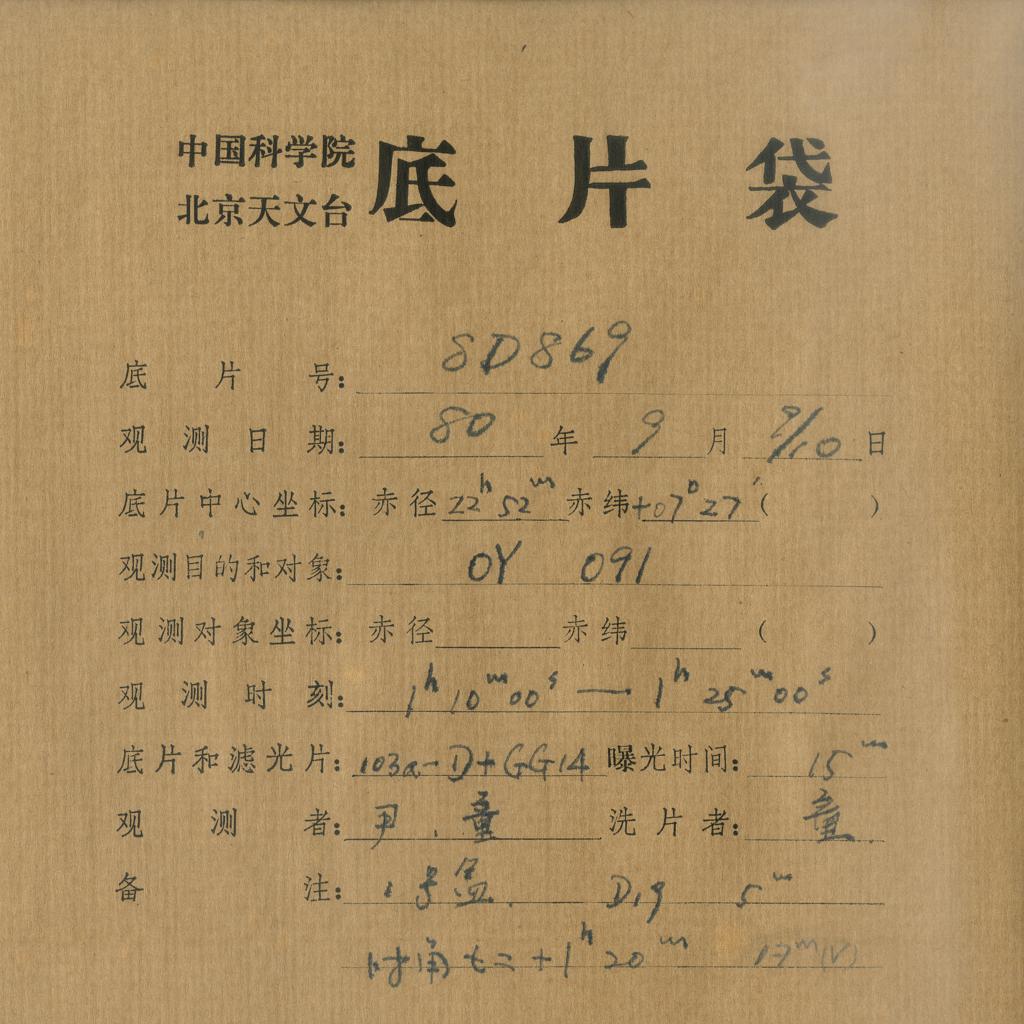 中国科学院
北京天文台
底片袋
底片号: SD869
观测日期: 80 年 9 月 9/10 日
底片中心坐标: 赤径 22h 52m 赤纬 +07° 27′ ( )
观测目的和对象: OY 091
观测对象坐标: 赤径 赤纬 ( )
观测时刻: 1h 10m 00s — 1h 25m 00s
底片和滤光片: 103a-D+GG14 曝光时间: 15m
观测者: 尹、童 洗片者: 童
备注: 1号盒. D19 5m
时角 t= +1h 20m 17m(V)